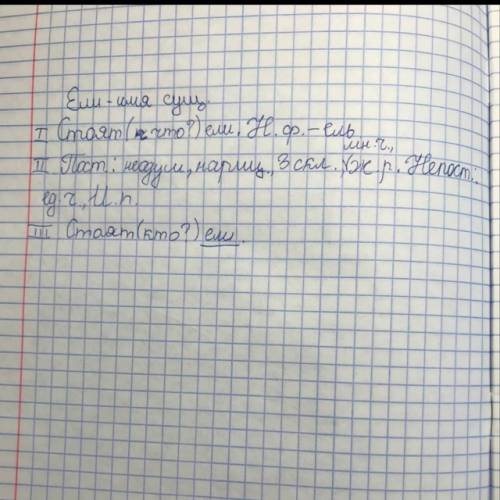 Ели - имя сущ.
I Стоят (что?) ели. Н. ф. - ель
мн. ч.,
II Пост.: неодуш., нариц., 3 скл., ж. р. Непост.:
ед. ч., И. п.
III Стоят (кто?) ели.